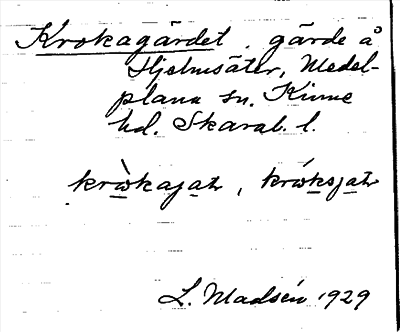 Krokagärdet, gärde å
Hjelmsäter, Medel-
plana sn. Kinne
hd. Skarab. l.
krὼkaja̲t, krώksja̲t
L. Madsén 1929